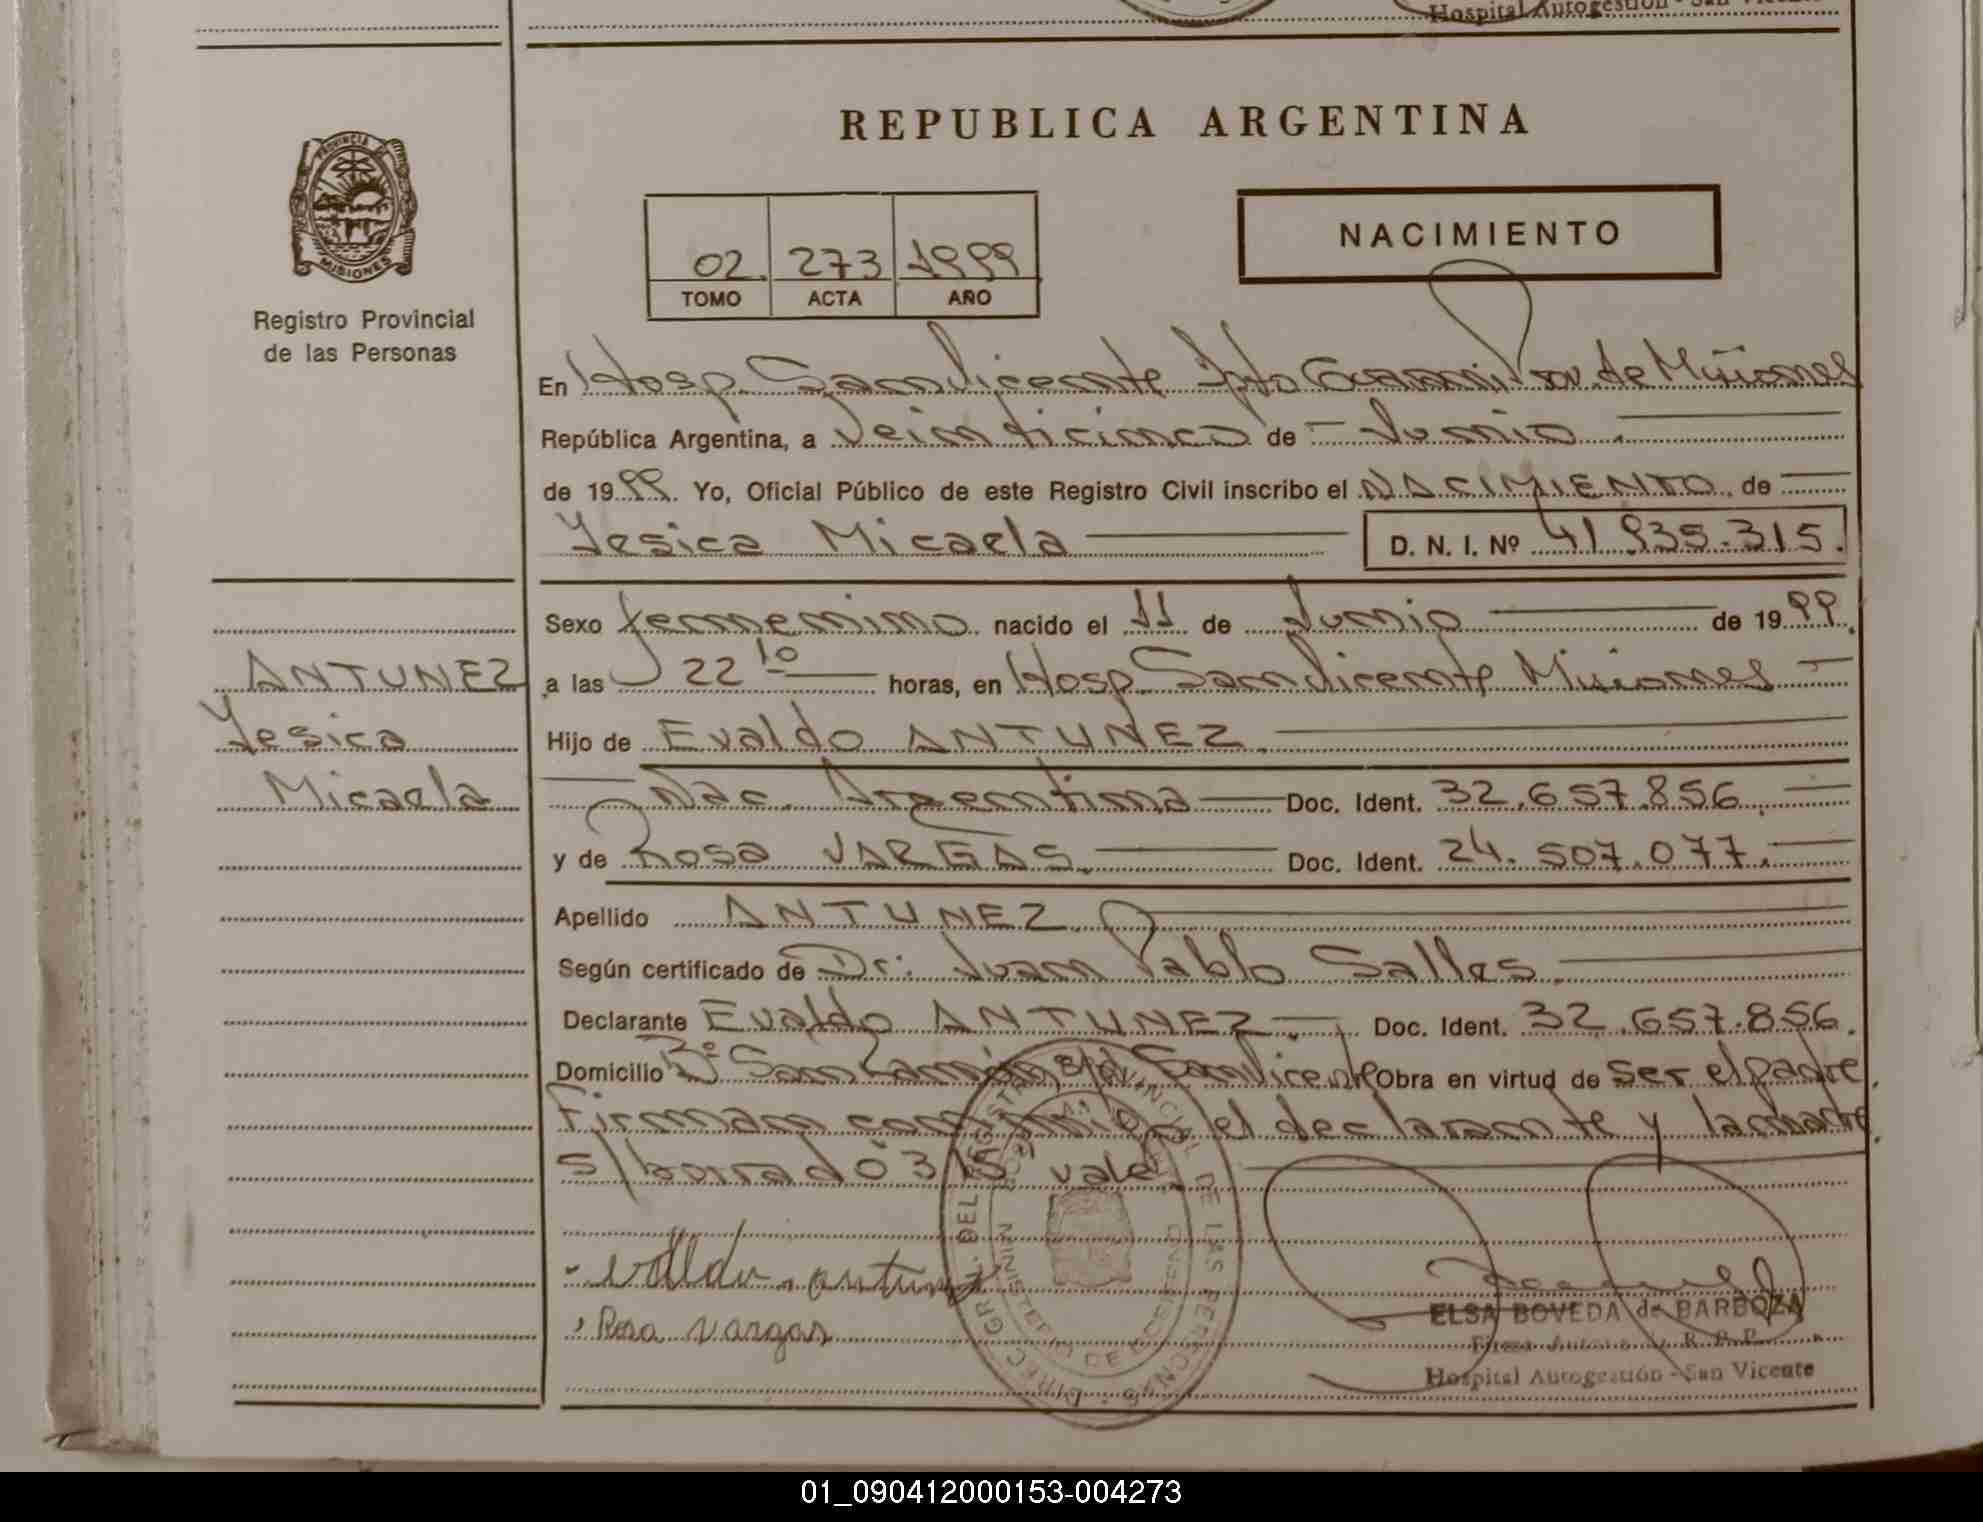 Hospital Autogestión - San Vicente
REPUBLICA ARGENTINA
PROVINCIA DE
MISIONES
Registro Provincial
de las Personas
02 273 1999
TOMO ACTA AÑO
NACIMIENTO
En Hosp. San Vicente Dpto Guaraní Prov. de Misiones
República Argentina, a Veinticinco de Junio
de 1999. Yo, Oficial Público de este Registro Civil inscribo el NACIMIENTO de
Yesica Micaela D. N. I. Nº 41.935.315.
ANTUNEZ
Yesica
Micaela
Sexo femenino nacido el 11 de Junio de 1999.
a las 22 10 horas, en Hosp. San Vicente Misiones
Hijo de Evaldo ANTUNEZ.
Nac. Argentina Doc. Ident. 32.657.856.
y de Rosa VARGAS. Doc. Ident. 24.507.077.
Apellido ANTUNEZ.
Según certificado de Dr: Juan Pablo Salles.
Declarante Evaldo ANTUNEZ. Doc. Ident. 32.657.856.
Domicilio Bº San Ramón, San Vicente Obra en virtud de ser el padre.
Firman conmigo el declarante y la madre.
s/borrado "315" vale.
Rosa Vargas
ELSA BOVEDA de BARBOZA
Hospital Autogestión - San Vicente
01_090412000153-004273